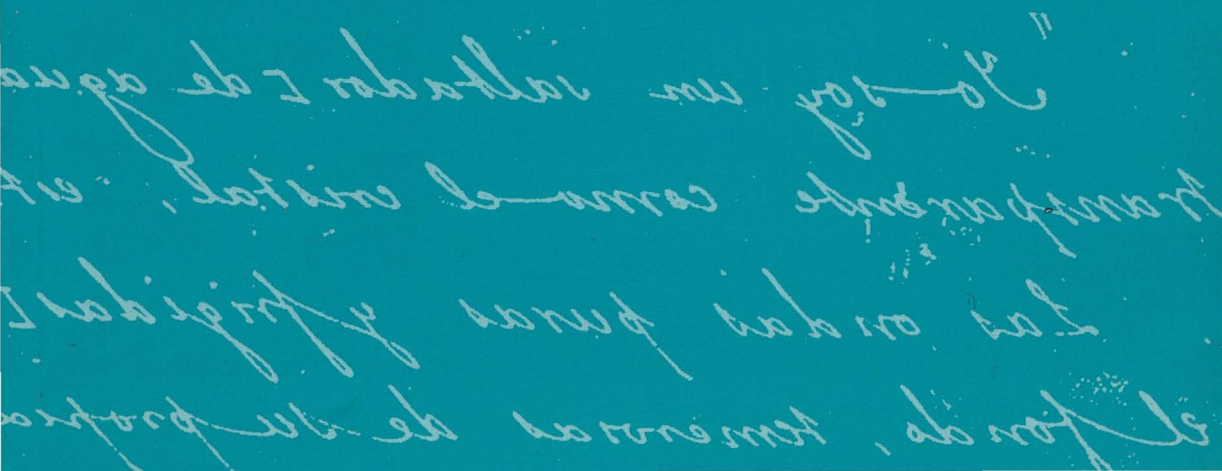 "Yo soy un saltador de agua
transparente como el cristal, es
Las ondas puras y frigidas
el fondo, temerosas de su propia